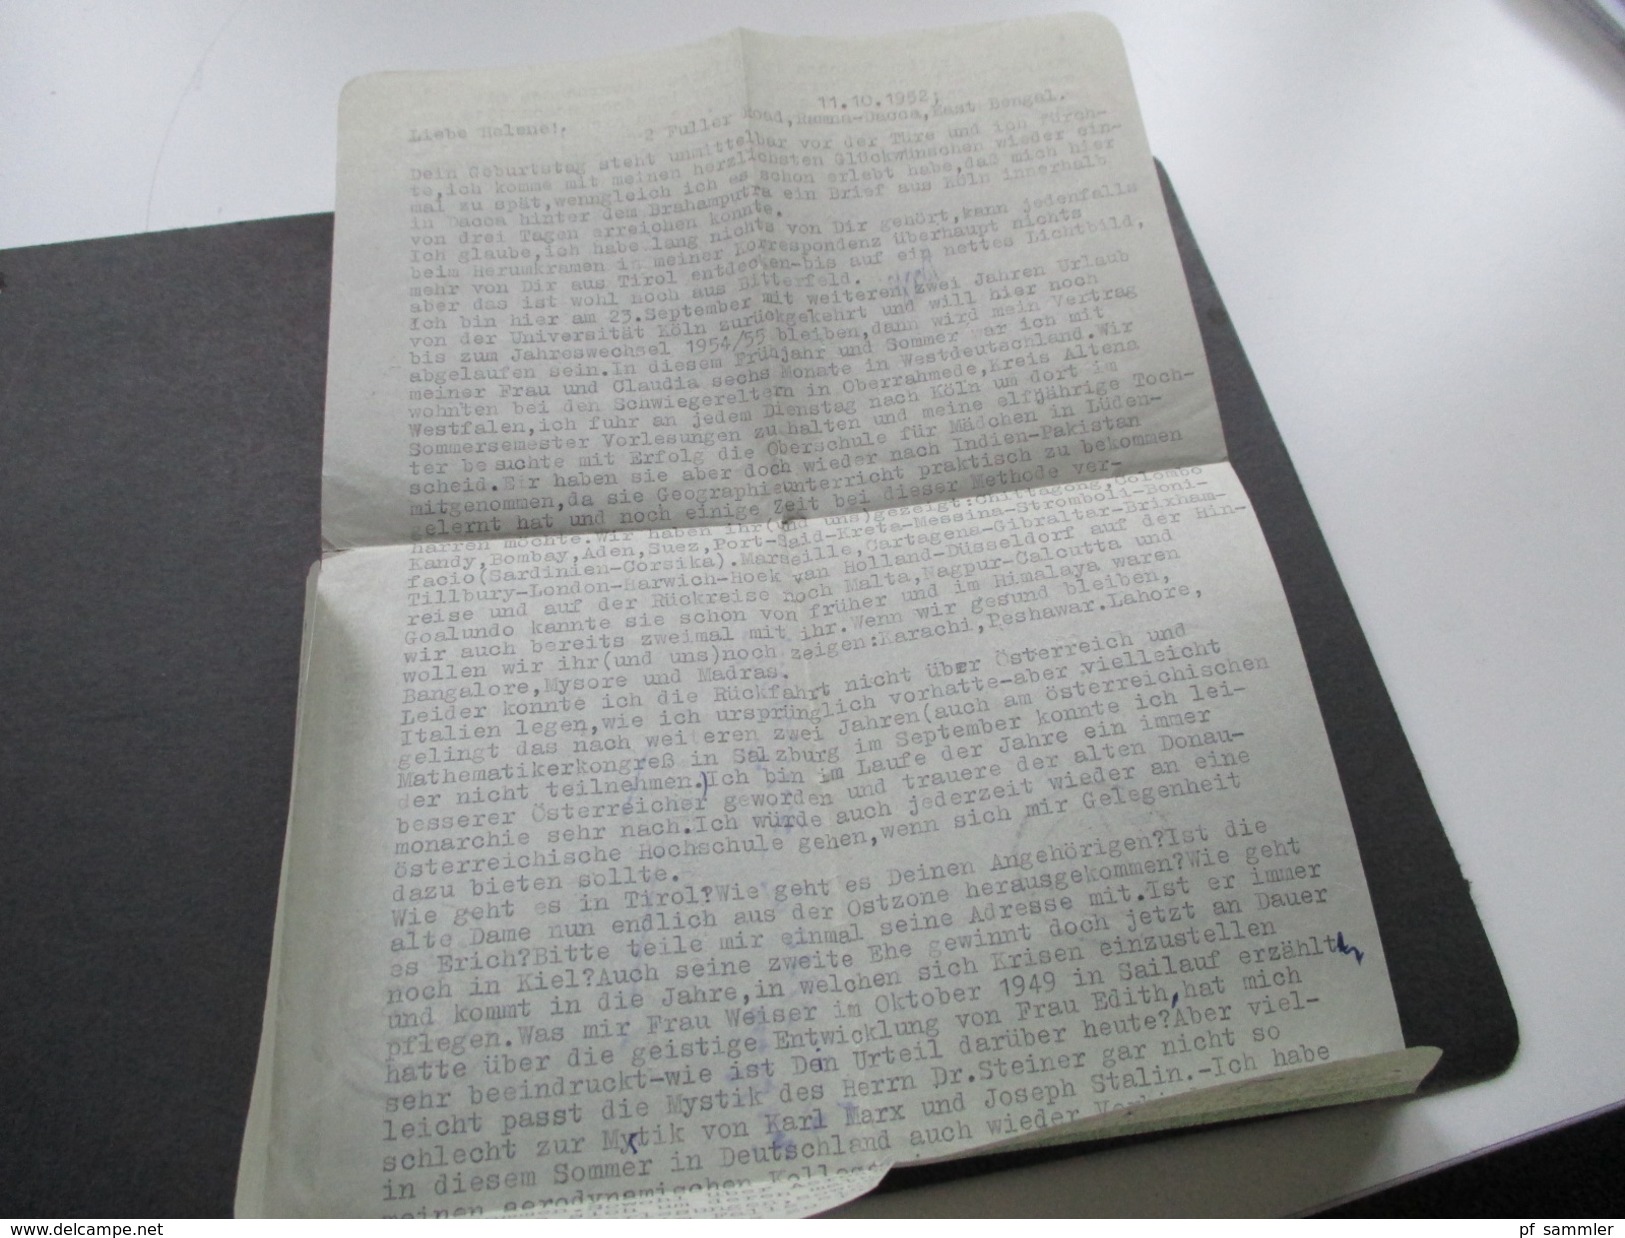 11.10.1952;
Liebe Helene!, 2 Fuller Road,Ramna-Dacca,East Bengal.
Dein Geburtstag steht unmittelbar vor der Türe und ich fürch-
te,ich komme mit meinen herzlichsten Glückwünschen wieder ein-
mal zu spät,wenngleich ich es schon erlebt habe,daß mich hier
in Dacca hinter dem Brahamputra ein Brief aus Köln innerhalb
von drei Tagen erreichen konnte.
Ich glaube,ich habe lang nichts von Dir gehört,kann jedenfalls
beim Herumkramen in meiner Korrespondenz überhaupt nichts
mehr von Dir aus Tirol entdecken-bis auf ein nettes Lichtbild,
aber das ist wohl noch aus Bitterfeld.
Ich bin hier am 23.September mit weiteren zwei Jahren Urlaub
von der Universität Köln zurückgekehrt und will hier noch
bis zum Jahreswechsel 1954/55 bleiben,dann wird mein Vertrag
abgelaufen sein.In diesem Frühjahr und Sommer war ich mit
meiner Frau und Claudia sechs Monate in Westdeutschland.Wir
wohnten bei den Schwiegereltern in Oberrahmede,Kreis Altena
Westfalen,ich fuhr an jedem Dienstag nach Köln um dort im
Sommersemester Vorlesungen zu halten und meine elfjährige Toch-
ter besuchte mit Erfolg die Oberschule für Mädchen in Lüden-
scheid.Wir haben sie aber doch wieder nach Indien-Pakistan
mitgenommen,da sie Geographieunterricht praktisch zu bekommen
gelernt hat und noch einige Zeit bei dieser Methode ver-
harren möchte.Wir haben ihr(und uns)gezeigt:Chittagong,Colombo
Kandy,Bombay,Aden,Suez,Port-Said-Kreta-Messina-Stromboli-Boni-
facio(Sardinien-Corsika).Marseille,Cartagena-Gibraltar-Brixham-
Tillbury-London-Harwich-Hoek van Holland-Düsseldorf auf der Hin-
reise und auf der Rückreise noch Malta,Nagpur-Calcutta und
Goalundo kannte sie schon von früher und im Himalaya waren
wir auch bereits zweimal mit ihr.Wenn wir gesund bleiben,
wollen wir ihr(und uns)noch zeigen:Karachi,Peshawar.Lahore,
Bangalore,Mysore und Madras.
Leider konnte ich die Rückfahrt nicht über Österreich und
Italien legen,wie ich ursprünglich vorhatte-aber vielleicht
gelingt das nach weiteren zwei Jahren(auch am österreichischen
Mathematikerkongreß in Salzburg im September konnte ich lei-
der nicht teilnehmen.)Ich bin im Laufe der Jahre ein immer
besserer Österreicher geworden und trauere der alten Donau-
monarchie sehr nach.Ich würde auch jederzeit wieder an eine
österreichische Hochschule gehen,wenn sich mir Gelegenheit
dazu bieten sollte.
Wie geht es in Tirol?Wie geht es Deinen Angehörigen?Ist die
alte Dame nun endlich aus der Ostzone herausgekommen?Wie geht
es Erich?Bitte teile mir einmal seine Adresse mit.Ist er immer
noch in Kiel?Auch seine zweite Ehe gewinnt doch jetzt an Dauer
und kommt in die Jahre,in welchen sich Krisen einzustellen
pflegen.Was mir Frau Weiser im Oktober 1949 in Sailauf erzählt
hatte über die geistige Entwicklung von Frau Edith,hat mich
sehr beeindruckt-wie ist Dein Urteil darüber heute?Aber viel-
leicht passt die Mystik des Herrn Dr.Steiner gar nicht so
schlecht zur Mystik von Karl Marx und Joseph Stalin.-Ich habe
in diesem Sommer in Deutschland auch wieder
meinen aerodynamischen
delcampe.net
pf sammler